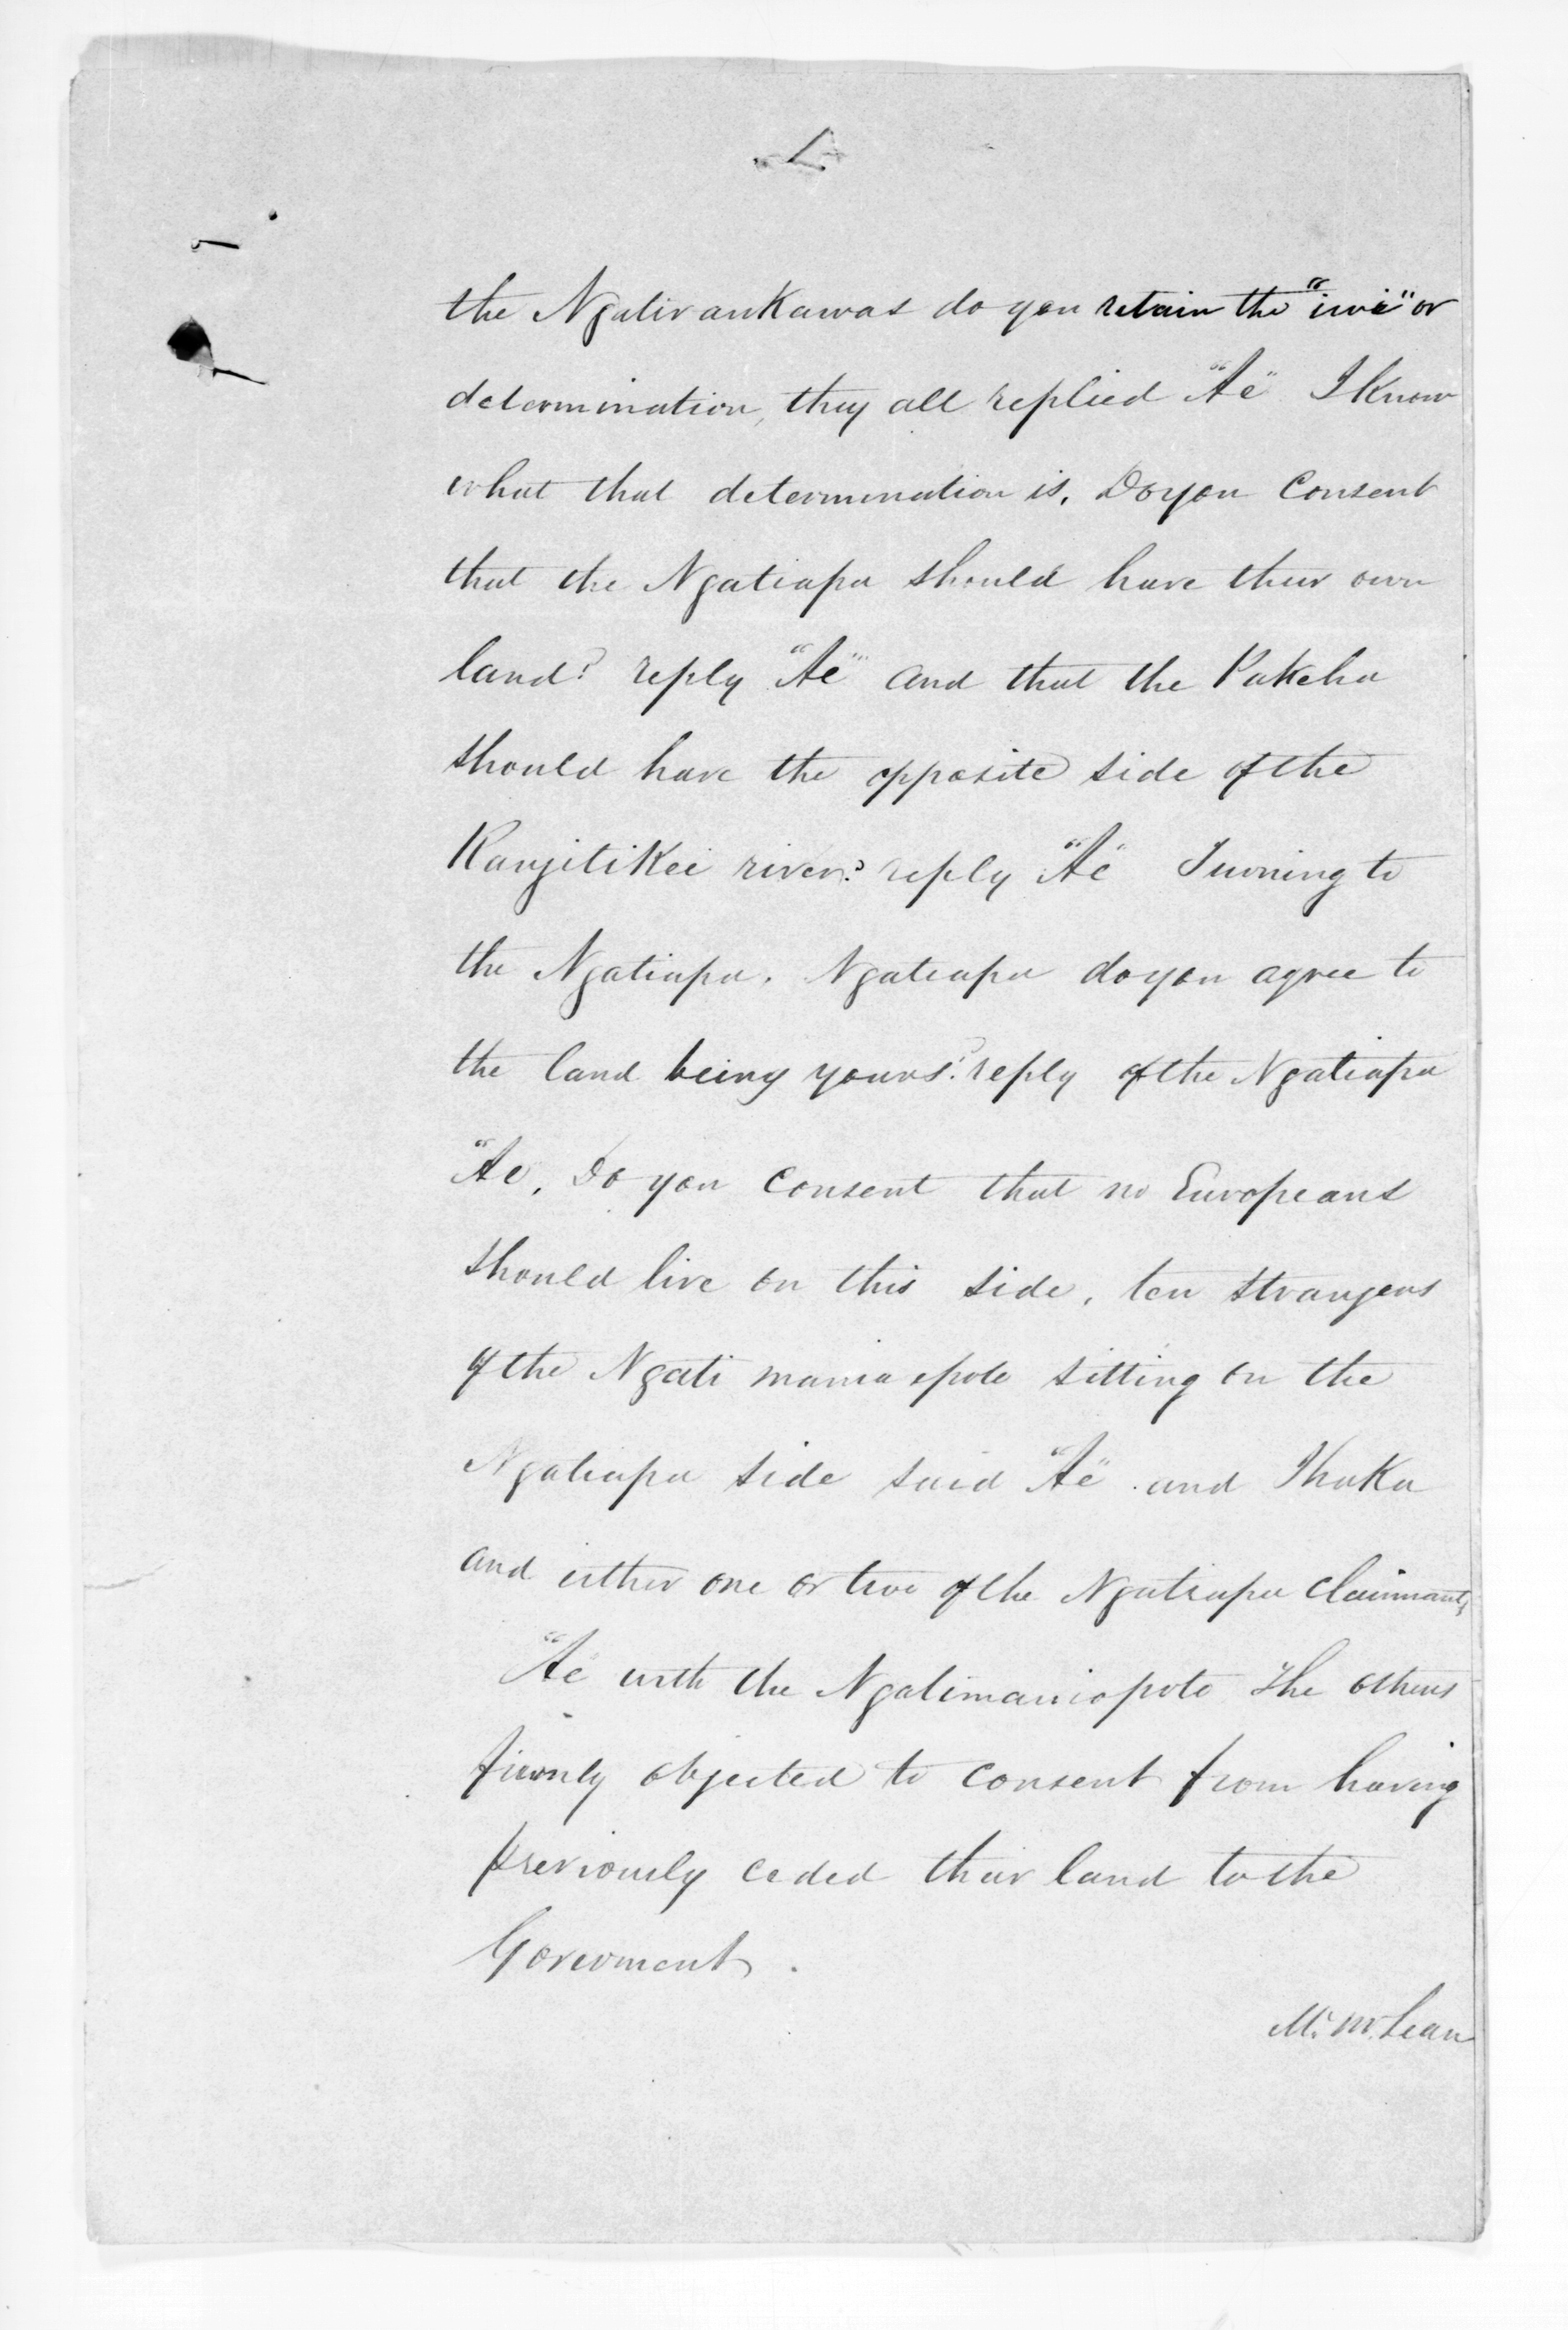 the Ngatiraukawas do you retain the "iwi" or
determination, they all replied "Ae" I Know
what that determination is. Do you Consent
that the Ngatiapa should have their own
land? reply "Ae" and that the Pakeha
should have the opposite side of the
Rangitikei river? reply "Ae" Turning to
the Ngatiapa. Ngatiapa do you agree to
the land being yours? reply of the Ngatiapa
"Ae. Do you Consent that no Europeans
should live on this side, ten strangers
of the Ngati maniapoto sitting on the
Ngatiapa side said "Ae" and Ihaka
and either one or two of the Ngatiapa Claimants
"Ae with the Ngatimaniopoto The others
firmly objected to consent from having
previously ceded their land to the
Goverment.
Mr. McLean